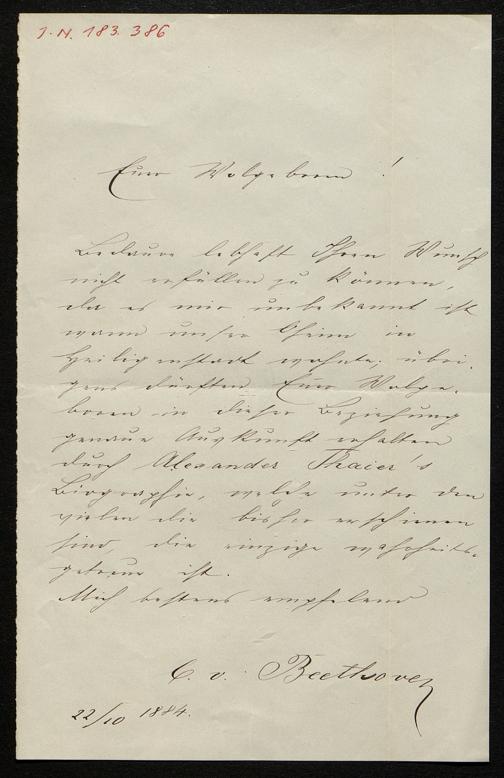 J.N. 183.386
Euer Wolgeboren!
Bedaure lebhaft Ihren Wunsch
nicht erfüllen zu können,
da es mir unbekannt ist
wann unser Oheim in
Heiligenstadt wohnte; übri-
gens dürften Euer Wolge-
boren in dieser Beziehung
genaue Auskunft erhalten
durch Alexander Thaier's
Biographie, welche unter den
vielen die bisher erschienen
sind, die einzige wahrheits-
getreue ist.
Mich bestens empfelend
C. v. Beethoven
22/10 1884.